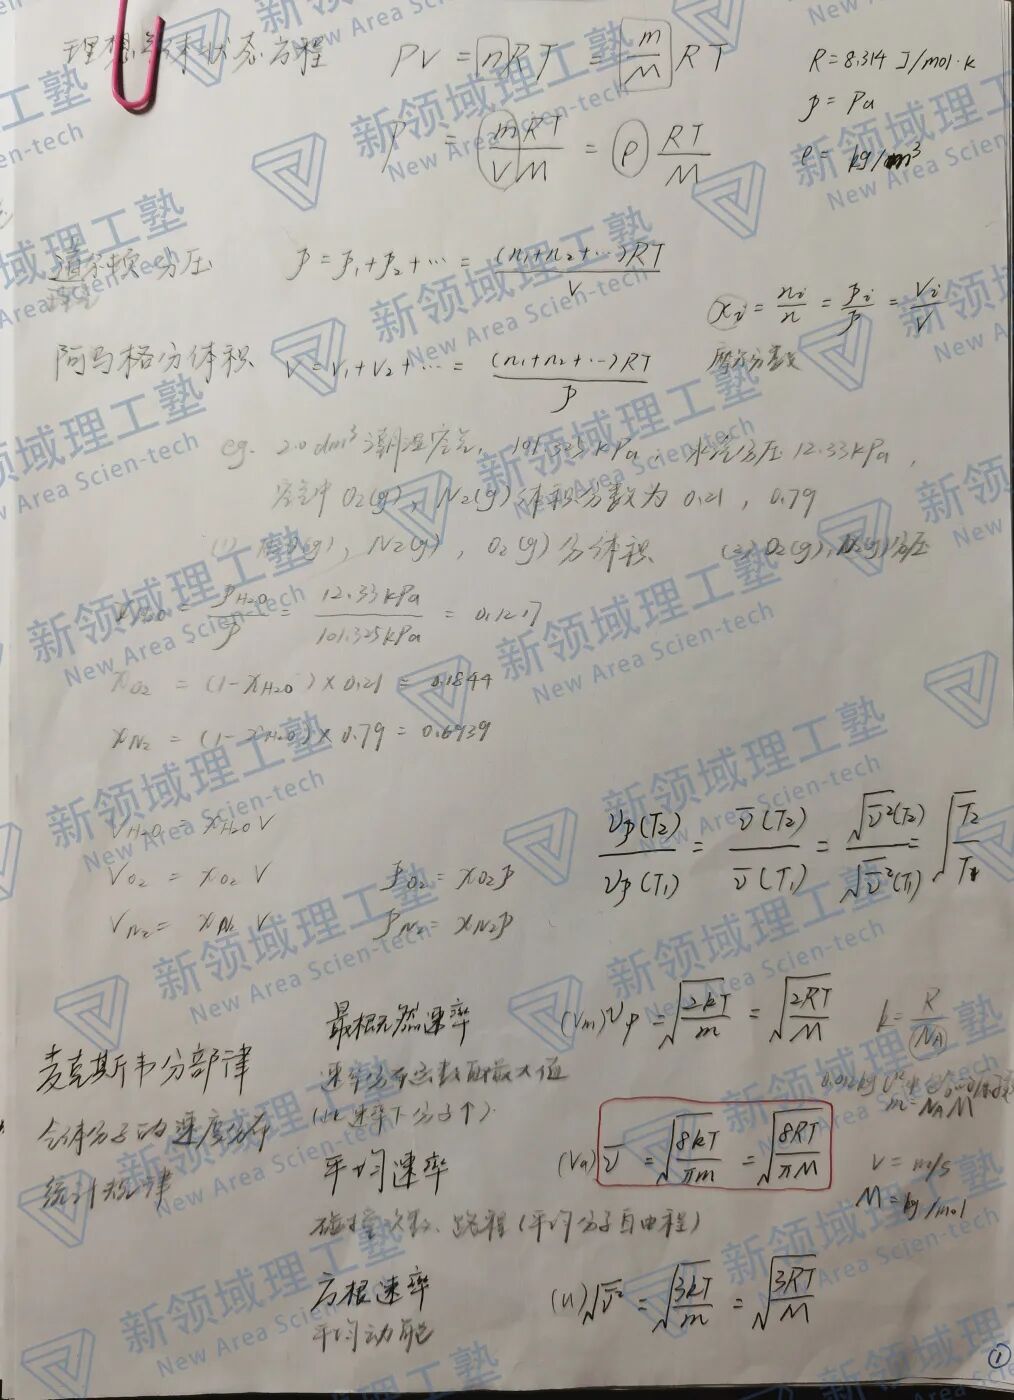 理想气体状态方程 PV = nRT = m/M RT R = 8.314 J/mol·k
P = mRT/VM = ρ RT/M p = Pa
ρ = kg/m³
道尔顿分压 p = p₁+p₂+… = (n₁+n₂+…)RT/V
定律
xᵢ = nᵢ/n = pᵢ/p = Vᵢ/V
摩尔分数
阿马格分体积 V = V₁+V₂+… = (n₁+n₂+…)RT/p
eg. 2.0dm³潮湿空气, 101.325kPa. 水汽分压 12.33kPa,
空气中 O₂(g), N₂(g) 体积分数为 0.21, 0.79
(1) H₂O(g), N₂(g), O₂(g) 分体积 (2) O₂(g), N₂(g)分压
x_H₂O = p_H₂O/p = 12.33kPa/101.325kPa = 0.1217
x_O₂ = (1-x_H₂O)×0.21 = 0.1844
x_N₂ = (1-x_H₂O)×0.79 = 0.6939
V_H₂O = x_H₂O V
V_O₂ = x_O₂ V p_O₂ = x_O₂ p
V_N₂ = x_N₂ V p_N₂ = x_N₂ p
νp(T₂)/νp(T₁) = ν̄(T₂)/ν̄(T₁) = √ν̄²(T₂)/√ν̄²(T₁) = √T₂/T₁
麦克斯韦分部律
气体分子的速度分布
统计规律
最概然速率 (Vm) νp = √2kT/m = √2RT/M k = R/N_A
速率分布函数取最大值
(此速率下分子↑)
0.012kg
m = N_A M
平均速率 (Va) ν̄ = √8kT/πm = √8RT/πM
v = m/s
M = kg/mol
碰撞次数、路程(平均分子自由程)
方根速率 (u)√ν̄² = √3kT/m = √3RT/M
平均动能
①
新领域理工塾
New Area Scien-tech